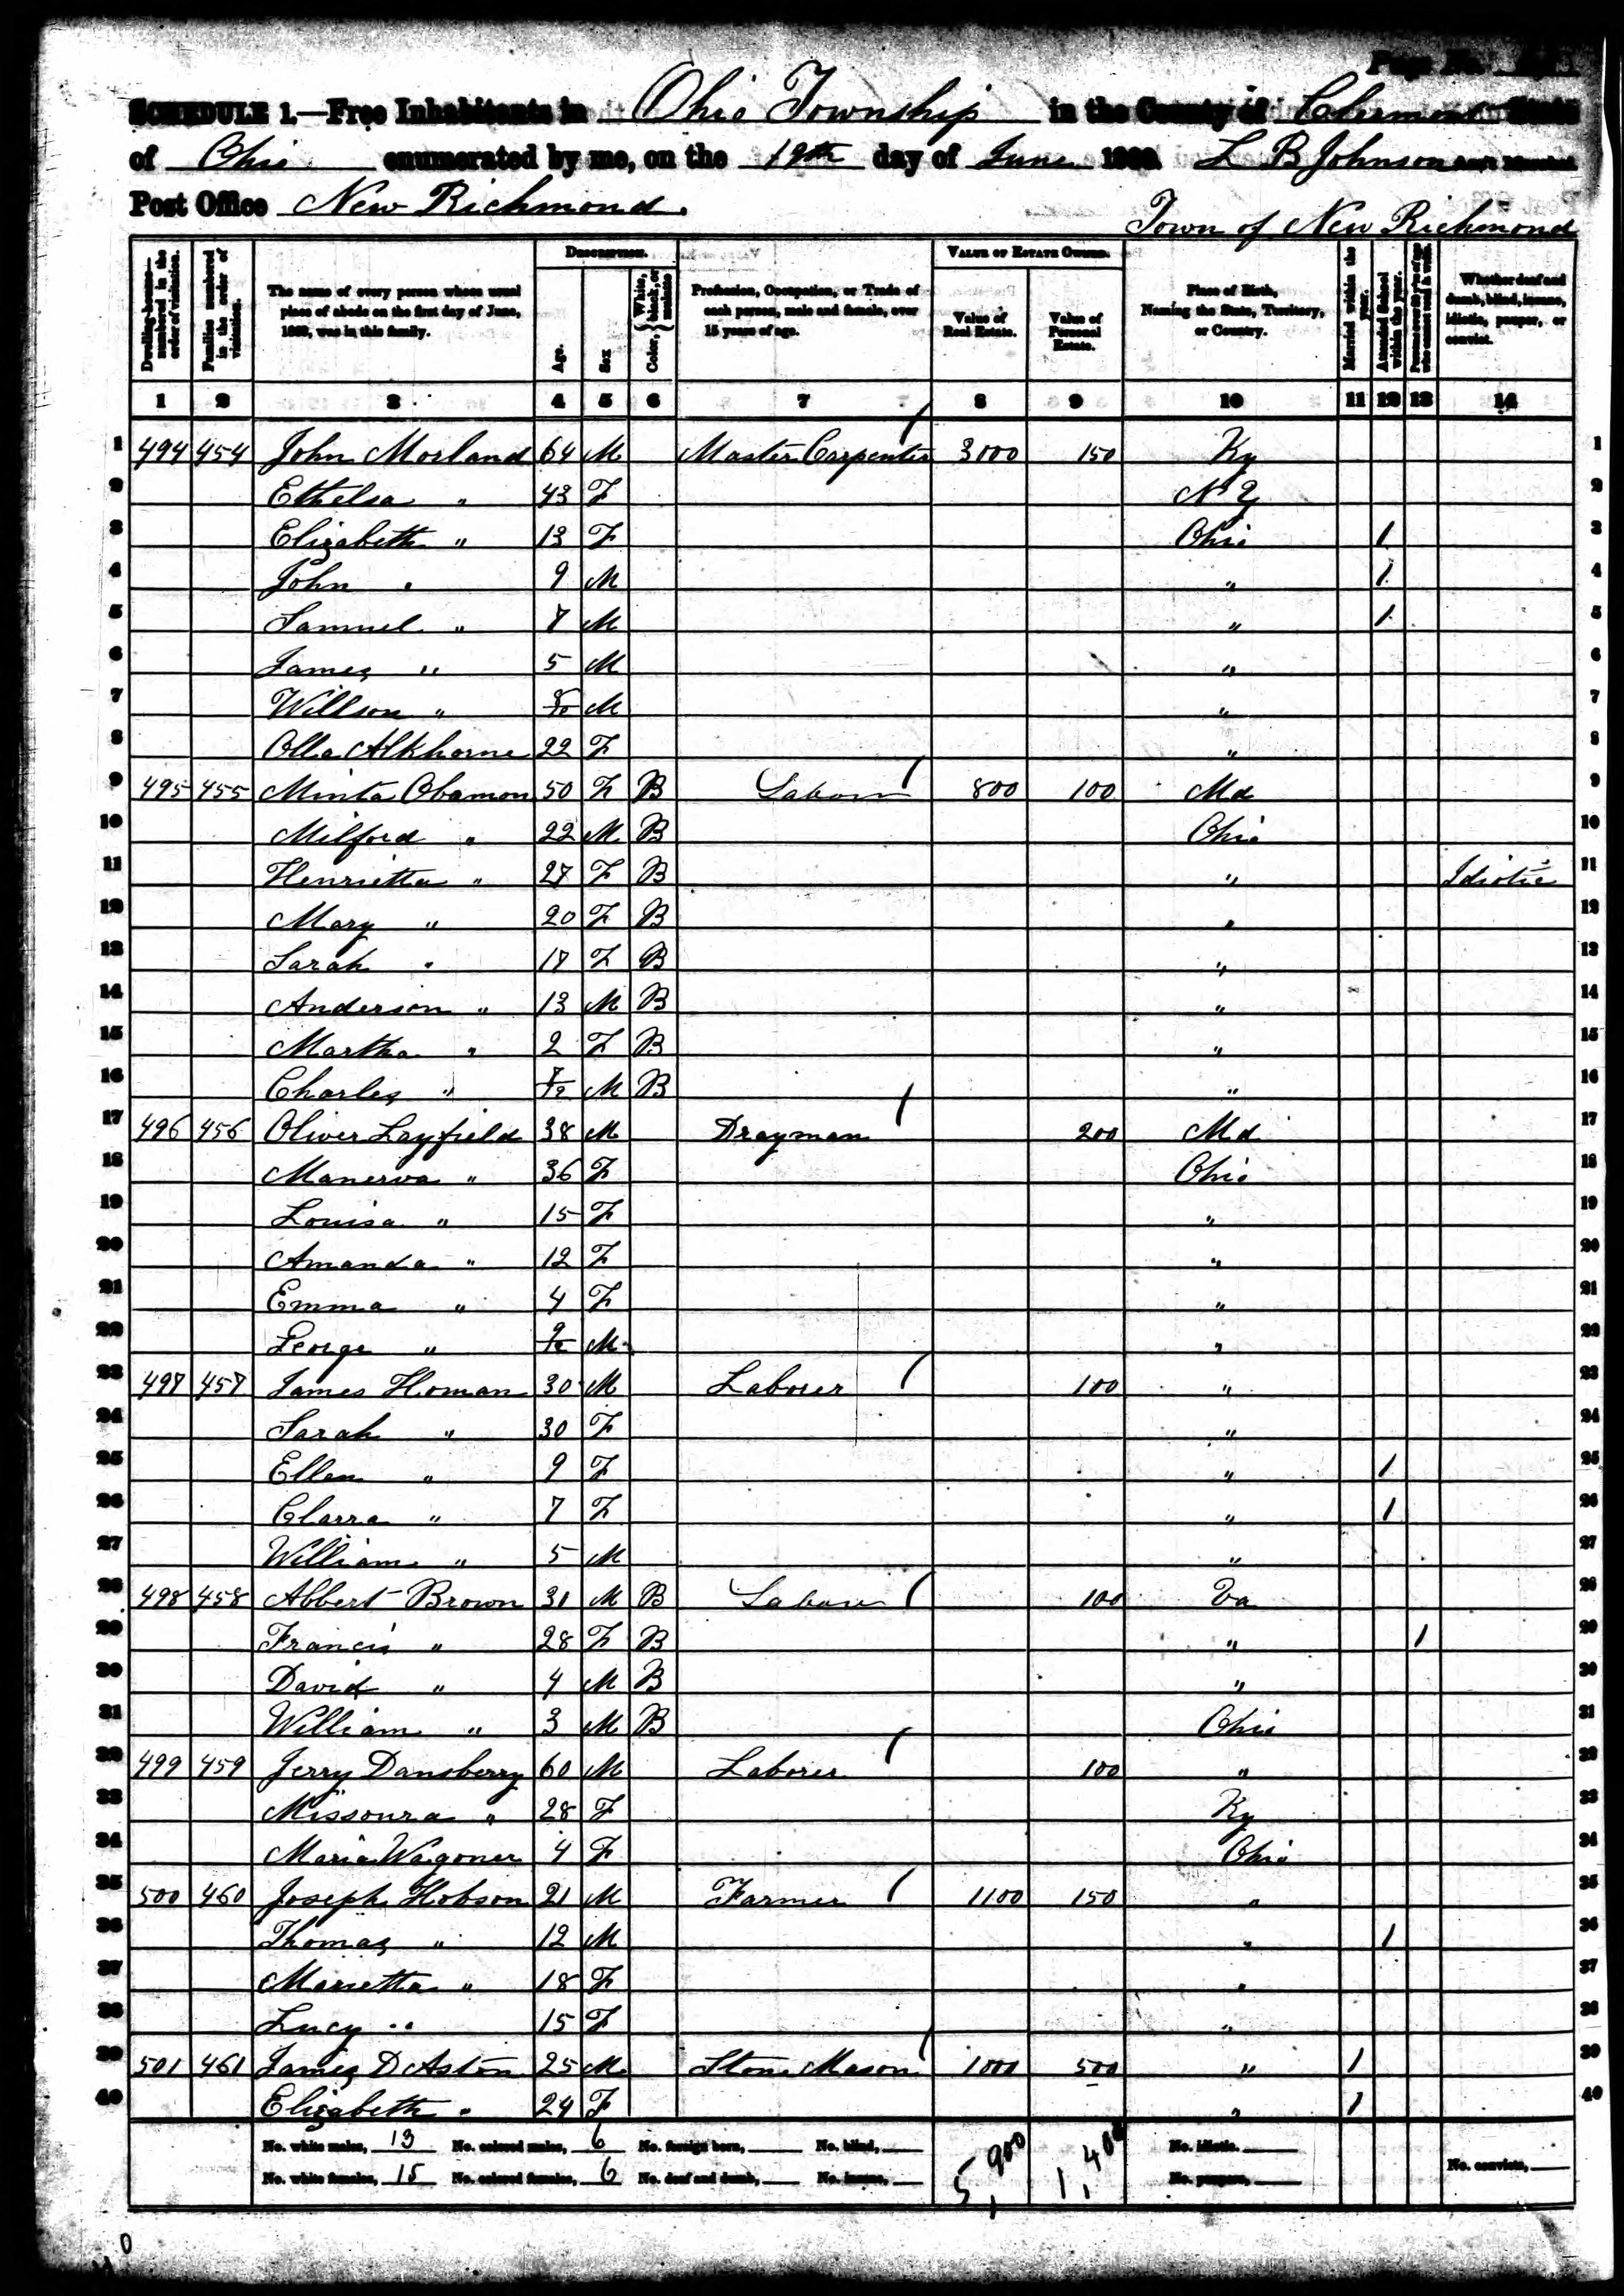 Page No.
SCHEDULE 1.—Free Inhabitants in Ohio Township in the County of Clermont State
of Ohio enumerated by me, on the 19th day of June 1860. L B Johnson Ass't Marshal
Post Office New Richmond.
Town of New Richmond
Dwelling-houses—numbered in the order of visitation.
Families numbered in the order of visitation.
The name of every person whose usual place of abode on the first day of June, 1860, was in this family.
Description.
Age.
Sex
Color, { White, black, or mulatto
Profession, Occupation, or Trade of each person, male and female, over 15 years of age.
Value of Estate Owned.
Value of Real Estate.
Value of Personal Estate.
Place of Birth, Naming the State, Territory, or Country.
Married within the year.
Attended School within the year.
Whether deaf and dumb, blind, insane, idiotic, pauper, or convict.
1 2 3 4 5 6 7 8 9 10 11 12 13 14
1 494 454 John Morland 64 M Master Carpenter 3000 150 Ky 1
2 Ethelsa " 43 F N Y 2
3 Elizabeth " 13 F Ohio 1 3
4 John " 9 M " 1 4
5 Samuel " 7 M " 1 5
6 James " 5 M " 6
7 Willson " M " 7
8 Olla Alkhorne 22 F " 8
9 495 455 Minta Obamon 50 F B Labour 800 100 Md 9
10 Milford " 22 M B Ohio 10
11 Henrietta " 27 F B " Idiotic 11
12 Mary " 20 F B " 12
13 Sarah " 17 F B " 13
14 Anderson " 13 M B " 14
15 Martha " 2 F B " 15
16 Charles " 7/12 M B " 16
17 496 456 Oliver Layfield 38 M Drayman 200 Md 17
18 Manerva " 36 F Ohio 18
19 Louisa " 15 F " 19
20 Amanda " 12 F " 20
21 Emma " 4 F " 21
22 George " 9/12 M " 22
23 497 457 James Homan 30 M Laborer 100 " 23
24 Sarah " 30 F " 24
25 Ellen " 9 F " 1 25
26 Clarra " 7 F " 1 26
27 William " 5 M " 27
28 498 458 Abbert Brown 31 M B Labour 100 Va 28
29 Francis " 28 F B " 1 29
30 David " 4 M B " 30
31 William " 3 M B Ohio 31
32 499 459 Jerry Dansberry 60 M Laborer 100 " 32
33 Missoura " 28 F Ky 33
34 Maria Wagoner 4 F Ohio 34
35 500 460 Joseph Hobson 21 M Farmer 1100 150 " 35
36 Thomas " 12 M " 1 36
37 Marietta " 18 F " 37
38 Lucy " 15 F " 38
39 501 461 James D Aston 25 M Stone Mason 1000 500 " 1 39
40 Elizabeth " 24 F " 1 40
No. white males, 13 No. colored males, 6 No. foreign born, No. blind, 5,900 1,400 No. idiotic.
No. white females, 15 No. colored females, 6 No. deaf and dumb, No. insane, No. paupers, No. convicts,